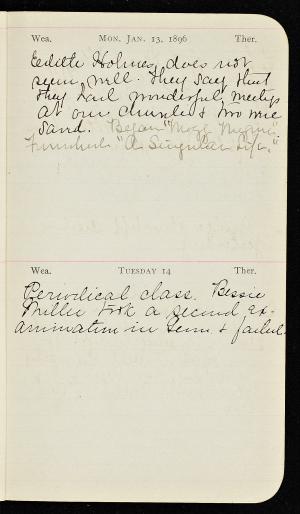 Wea. MON. JAN. 13, 1896 Ther.
Edith Holmes does not
seem well. They say that
they had wonderful meetings
at our church & two were
saved. Began
Finished "A Singular Life."
Wea. TUESDAY 14 Ther.
Periodical class. Bessie
Miller took a second ex-
amination in Germ. & failed.